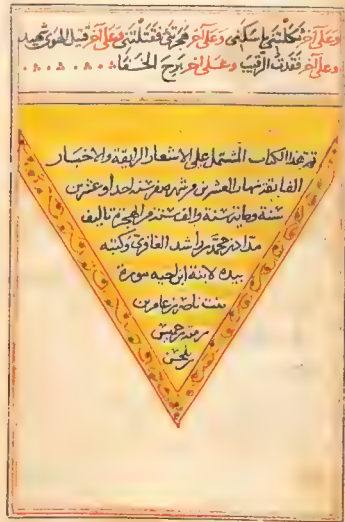 وعلى آخر ثكلتني وعلى آخر هجرتني فقتلتني وعلى آخر قتيل الهوى شهيد
وعلى آخر فقدت الرقيب وعلى آخر برح الخفا
تم هذا الكتاب المشتمل على الاشعار الرايقة والاخبار
الفايقة نهار العشرين من شهر صفر سنة احد وعشرين
سنة ومايتين سنة والف سنة من الهجرة تاليف
مداد بن محمد بن راشد الغاوي وكتبه
بيده لابنة ابن اخيه سورة
بنت ناصر بن عامر بن
خميس